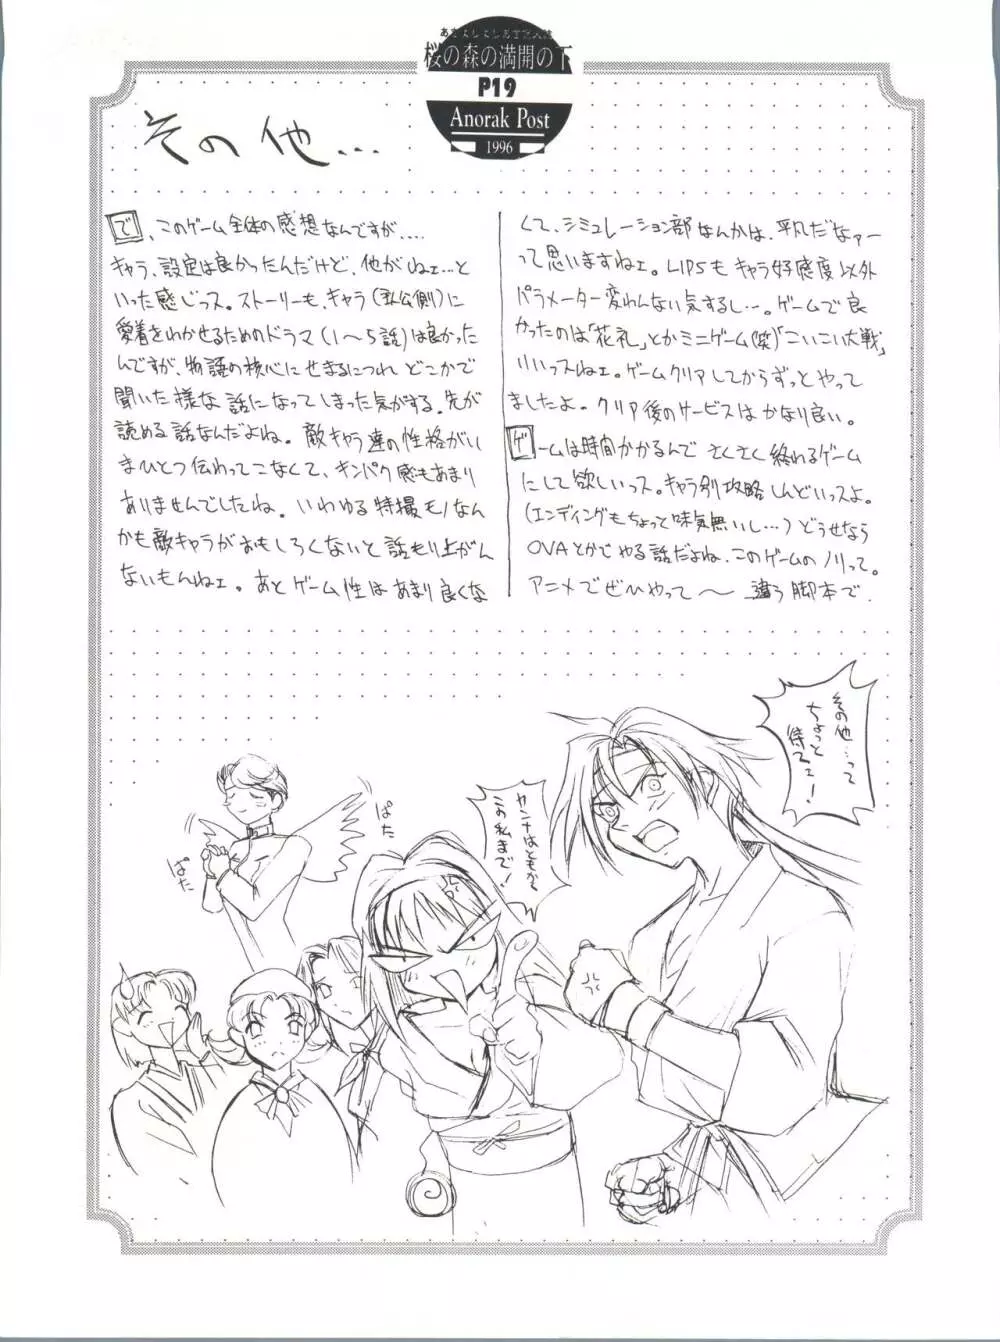 桜の森の満開の下
P19
Anorak Post
1996
その他…
で、このゲーム全体の感想なんですが‥‥
キャラ、設定は良かったんだけど、他がねェ…と
いった感じっス。ストーリーも、キャラ(主人公側)に
愛着をわかせるためのドラマ(1〜5話)は良かった
んですが、物語の核心にせまるにつれどこかで
聞いた様な話になってしまった気がする。先が
読める話なんだよね。敵キャラ達の性格がい
まひとつ伝わってこなくて、キンパク感もあまり
ありませんでしたね。いわゆる特撮モノなん
かも敵キャラがおもしろくないと話もり上がん
ないもんねェ。あとゲーム性はあまり良くな
くて、シミュレーション部なんかは、平凡だなァー
って思いますねェ。LIPSもキャラ好感度以外
パラメーター変わんない気するし…。ゲームで良
かったのは「花札」とかミニゲーム(笑)「こいこい大戦」
いいっスねェ。ゲームクリアしてからずっとやって
ましたよ。クリア後のサービスはかなり良い。
ゲームは時間かかるんでさくさく終わるゲーム
にして欲しいっス。キャラ別攻略しんどいっスよ。
(エンディングもちょっと味気無いし…)どうせなら
OVAとかでやる話だよね、このゲームのノリって。
アニメでぜひやって〜 違う脚本で
その他…って
ちょっと
待てェ!
カンナはともかく
この私まで!
ぱた
ぱた